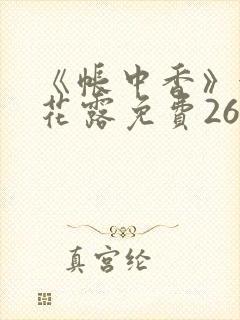 《帐中香》
花露免費26
真宫纶